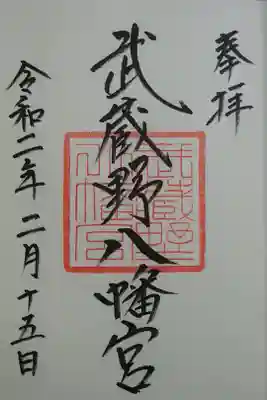 奉拝
武蔵野八幡宮
令和二年二月十五日